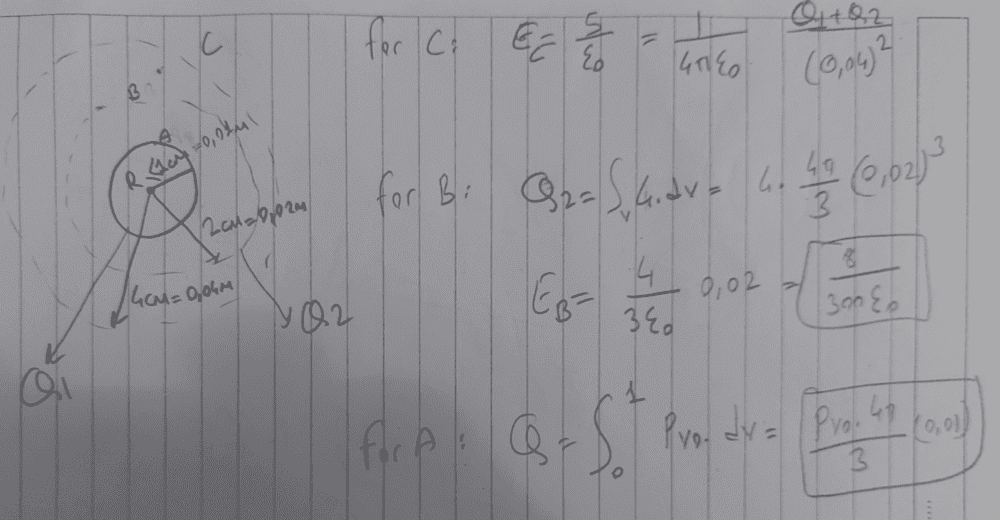 C
B
A
R = 1cm=0,01м
2см=0,02м
4см=0,04м
Q1
Q2
for C: E_C = 5/ε0 = 1/4πε0 Q1+Q2/(0,04)^2
for B: Q2 = ∫_v 4.dv = 4. 4π/3 (0,02)^3
E_B = 4/3ε0 0,02 = 8/300ε0
for A: Q = ∫_0^1 Pvo. dv = Pvo. 4π/3 (0,01)